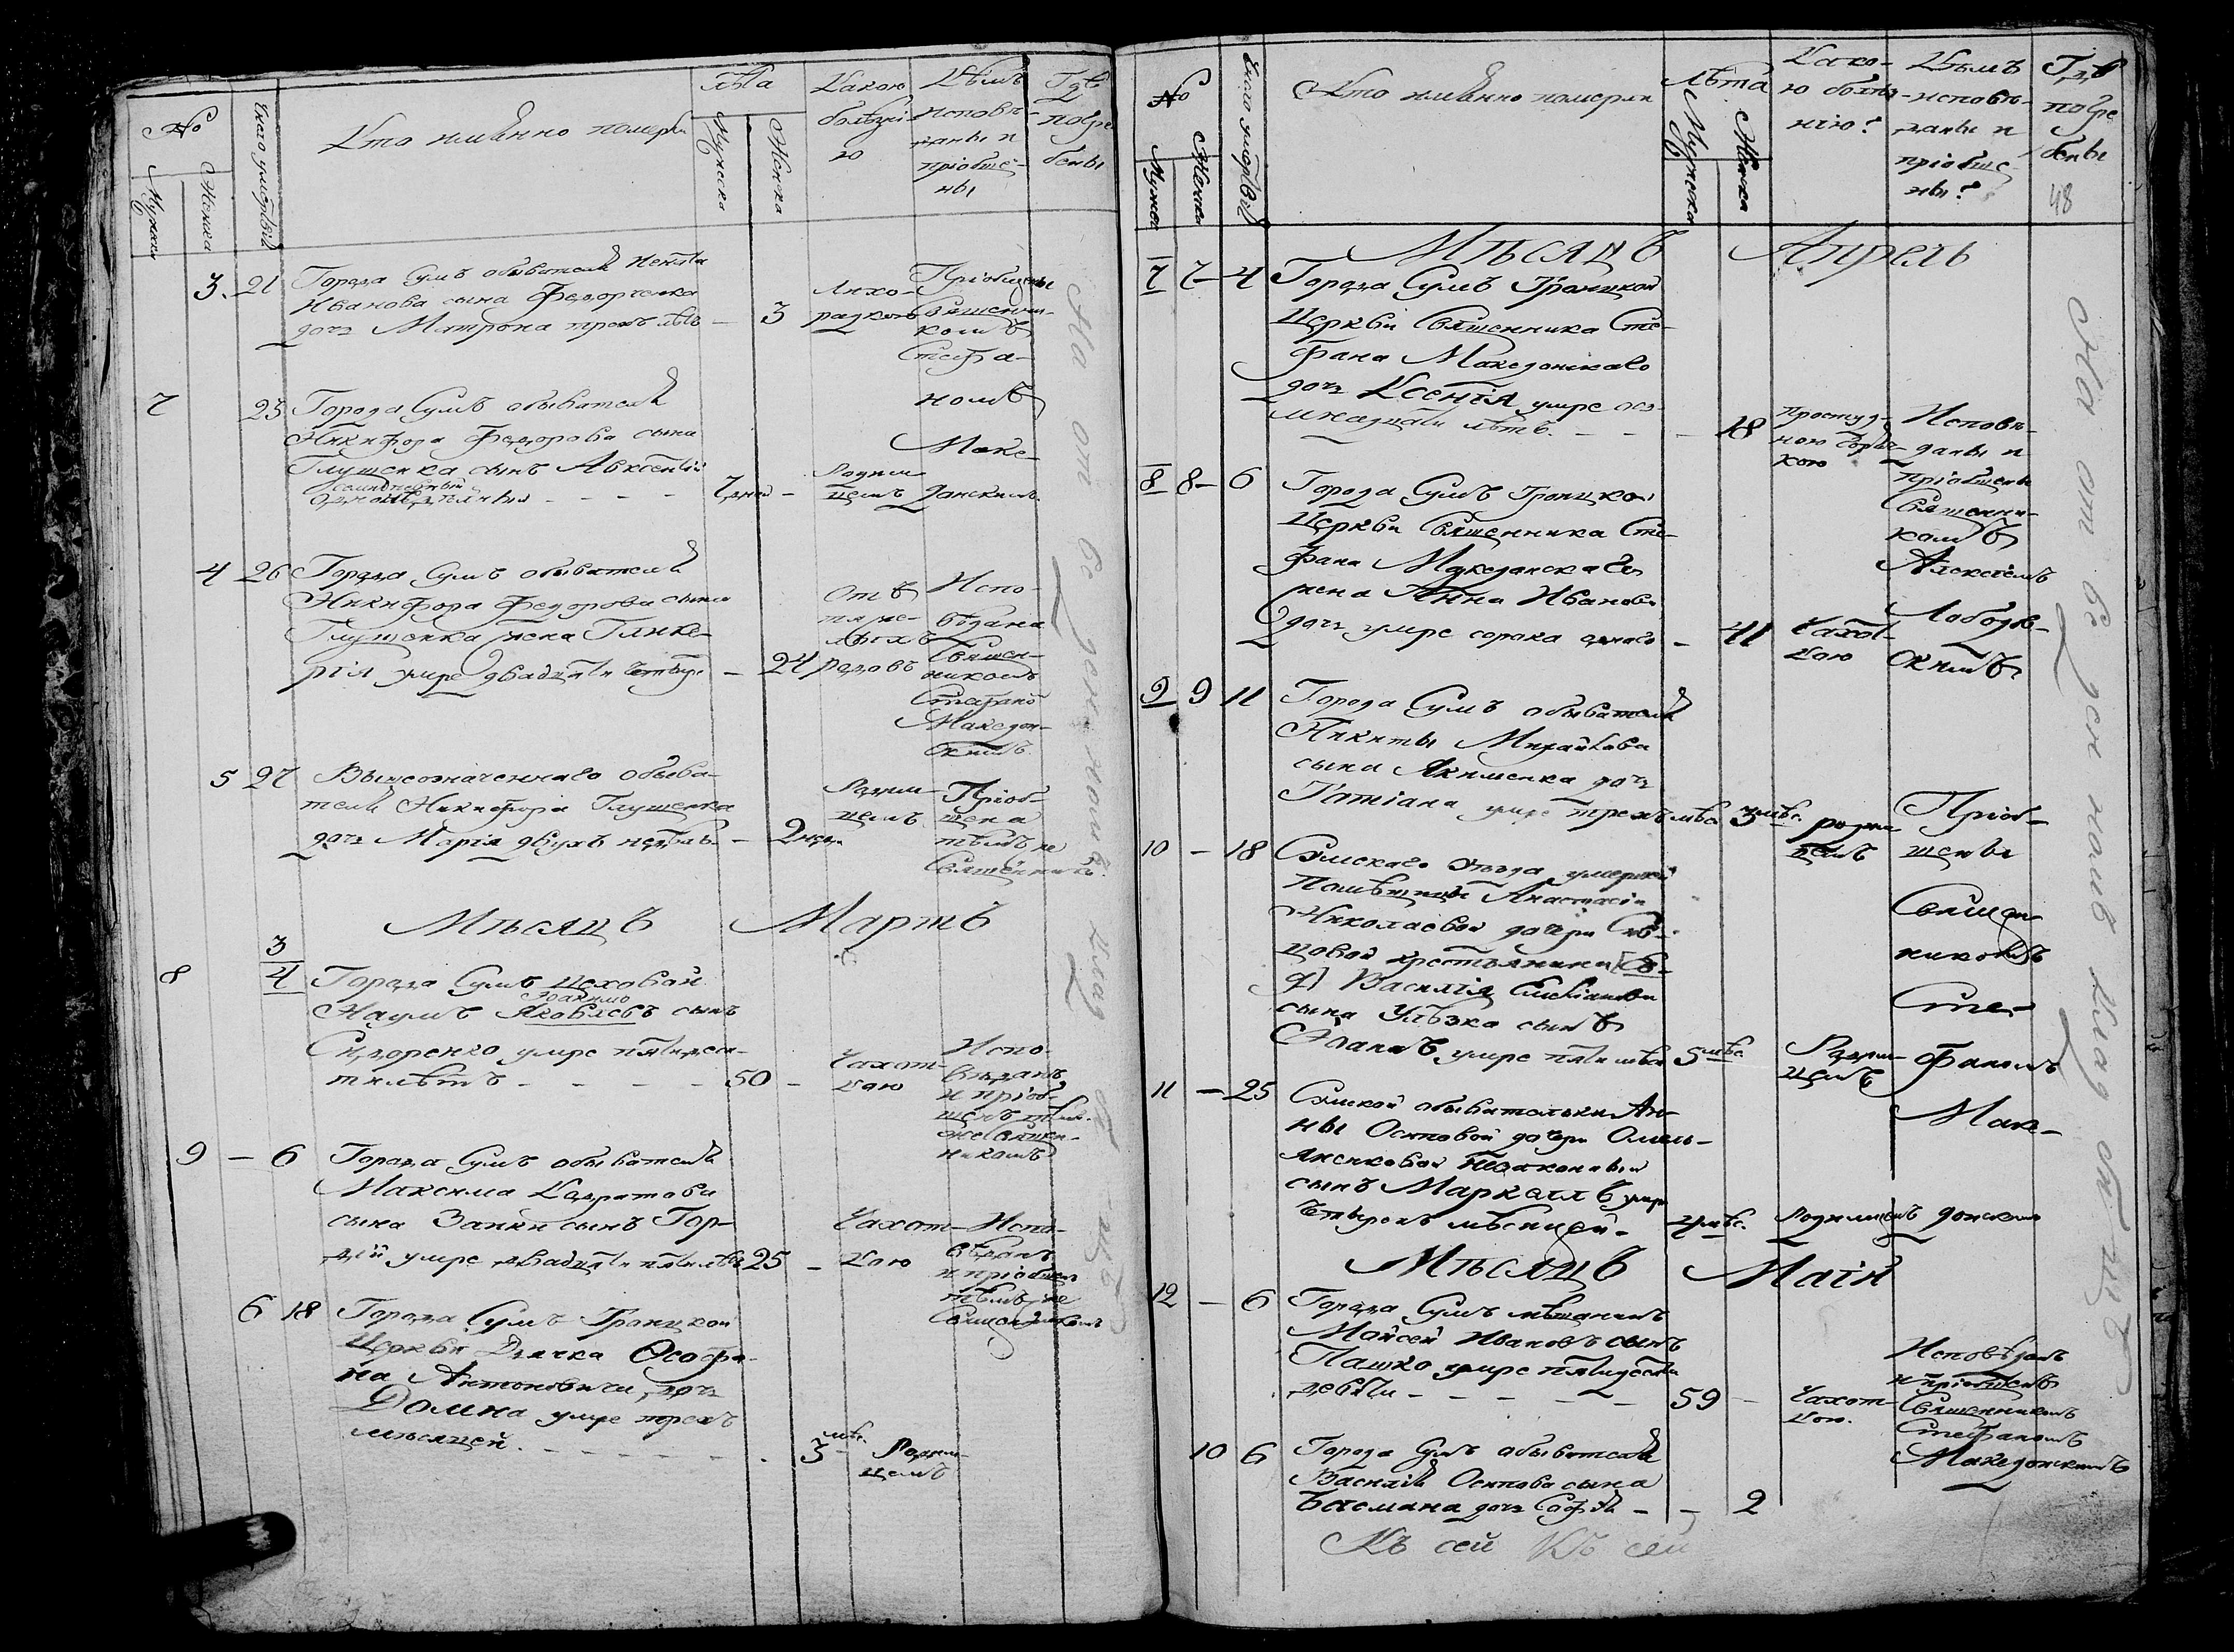 №
Мужеск
Женска
Число умертвій
Кто имянно померли
лѣта
Мужеска
Женска
Какою
болѣзні-
ю
Кѣмъ
исповѣ-
даны и
пріобще-
ны
Гдѣ
погре
бены
3. 21 Города Сумъ обывателя
Иванова сына Федорченка
дочь Матрона трехъ лѣтъ — 3
Лихо-
радкою
Пріобщены
Священни-
комъ
Стефа-
номъ
Маке-
донскимъ
7 23 Города Сумъ обывателя
Никифора Федорова сына
Глущенка сынъ Авксентій
семидневный
7 дней —
Родим-
цемъ
4 26 Города Сумъ обывателя
Никифора Федорова сына
Глущенка жена Глике-
рія умре двадцати четыре — 24
Отъ
тяже-
лыхъ
родовъ
Испо-
вѣдана
Священ-
никомъ
Стефано
Македон-
скимъ
5 27 Вышеозначеннаго обыва-
теля Никифора Глущенка
дочь Марія двухъ недѣль — 2 нед.
Родим-
цемъ
Пріоб-
щена
тѣмъ же
Священникъ
Мѣсяцъ Мартъ
3
8 4 Города Сумъ цеховой
Наумъ Яковлевъ сынъ
Сидоренко умре пятидеся-
ти лѣтъ - - - - 50 -
Чахот-
кою
Испо-
вѣданъ
и пріоб-
щенъ тѣм-
же Священ-
никомъ
9 — 6 Города Сумъ обывателя
Максима Кодратова
сына Заики сынъ Гор-
дій умре двадцати пяти лѣтъ 25 -
Чахот-
кою
Испо-
вѣданъ
и пріобщенъ
тѣмъ же
Священникомъ
6 18 Города Сумъ Троицкой
Церкви Дячка Ѳеофа-
на Антоновича дочь
Домна умре трехъ
мѣсяцей. - - - - -
мѣс.
3 -
Родим-
цемъ
На отведенномъ кладбищѣ
№
Мужеск
Женска
Число умертвій
Кто имянно померли
Лѣта
Мужеска
Женска
Како-
ю болѣз-
нію?
Кѣмъ
исповѣ-
даны и
пріобще-
ны?
Гдѣ
погре
бены
48
Мѣсяцъ Апрель
7 7 — 4 Города Сумъ Троицкой
Церкви Священника Сте-
фана Македонскаго
дочь Ксенія умре осе-
мнадцати лѣтъ. - - - 18
Простуд-
ною горяч-
кою
Исповѣ-
даны и
пріобщены
Священни-
комъ
Алексіемъ
Лободов-
скимъ
8 8 — 6 Города Сумъ Троицкой
Церкви Священника Сте-
фана Македонскаго
жена Анна Иванова
дочь умре сорока одного — 41
Чахот-
кою
9 9 11 Города Сумъ обывателя
Никиты Михайлова
сына Якименка дочь
Татіана умре трехъ мѣс. 3 мѣс.
родим
цемъ
Пріоб-
щены
Священ-
никомъ
Сте-
фаномъ
Маке-
донскимъ
10 — 18 Сумскаго уѣзда умершей
Помѣщицы Анастасіи
Николаевой дочери
цовой крестьянина
Василія Емелянова
сына сынъ
Іоаннъ умре пяти мѣс. 5 мѣс.
Родим-
цемъ
11 — 25 Сумской обывательки Ан-
ны Осиповой дочери Омель-
яненковой незаконный
сынъ Маркеллъ умре
четырехъ мѣсяцей - 4 мѣс.
Родимцемъ
Мѣсяцъ Маій
12 — 6 Города Сумъ мѣщанинъ
Мойсей Ивановъ сынъ
Пашко умре пятидесяти
девяти - - - - - 59 -
Чахот-
кою.
Исповѣданъ
и пріобщенъ
Священникомъ
Стефаномъ
Македонскимъ
10 6 Города Сумъ обывателя
Василія Осипова сына
Басмана дочь Софія - - 2
На отведенномъ кладбищѣ
Къ сей Къ сей